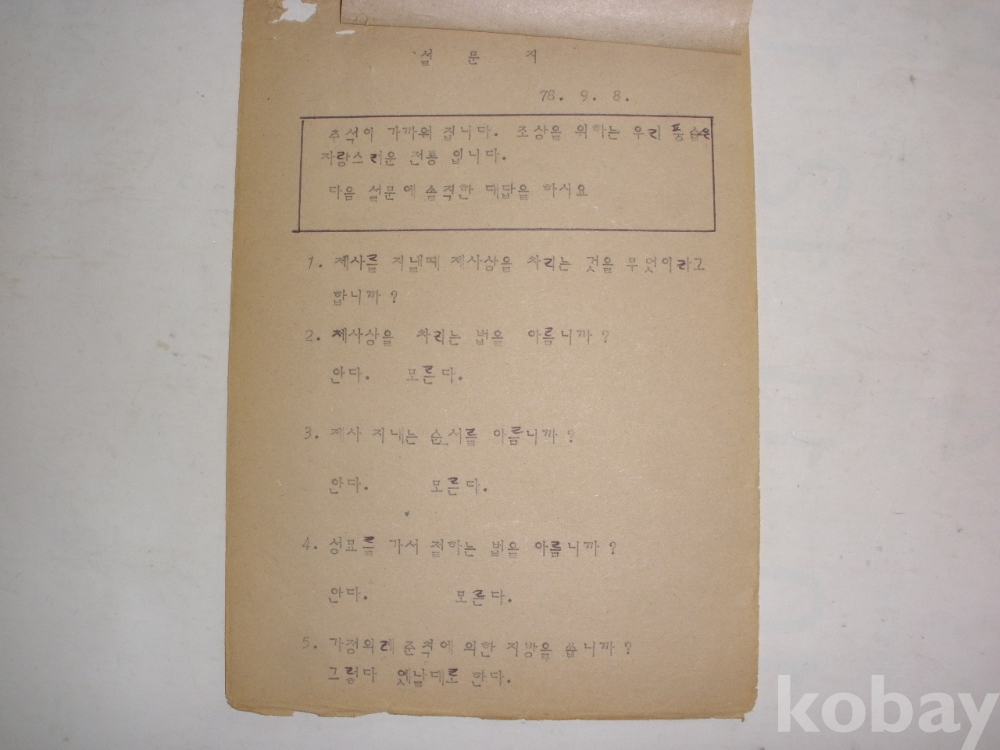 설 문 지
78. 9. 8.
추석이 가까워 집니다. 조상을 위하는 우리 풍습은
자랑스러운 전통 입니다.
다음 설문에 솔직한 대답을 하시요
1. 제사를 지낼때 제사상을 차리는 것을 무엇이라고
합니까?
2. 제사상을 차리는 법을 아릅니까?
안다. 모른다.
3. 제사 지내는 순서를 아릅니까?
안다. 모른다.
4. 성묘를 가서 절하는 법을 아릅니까?
안다. 모른다.
5. 가정의례 준칙에 의한 지방을 씁니까?
그렇다 옛날대로 한다.
kobay